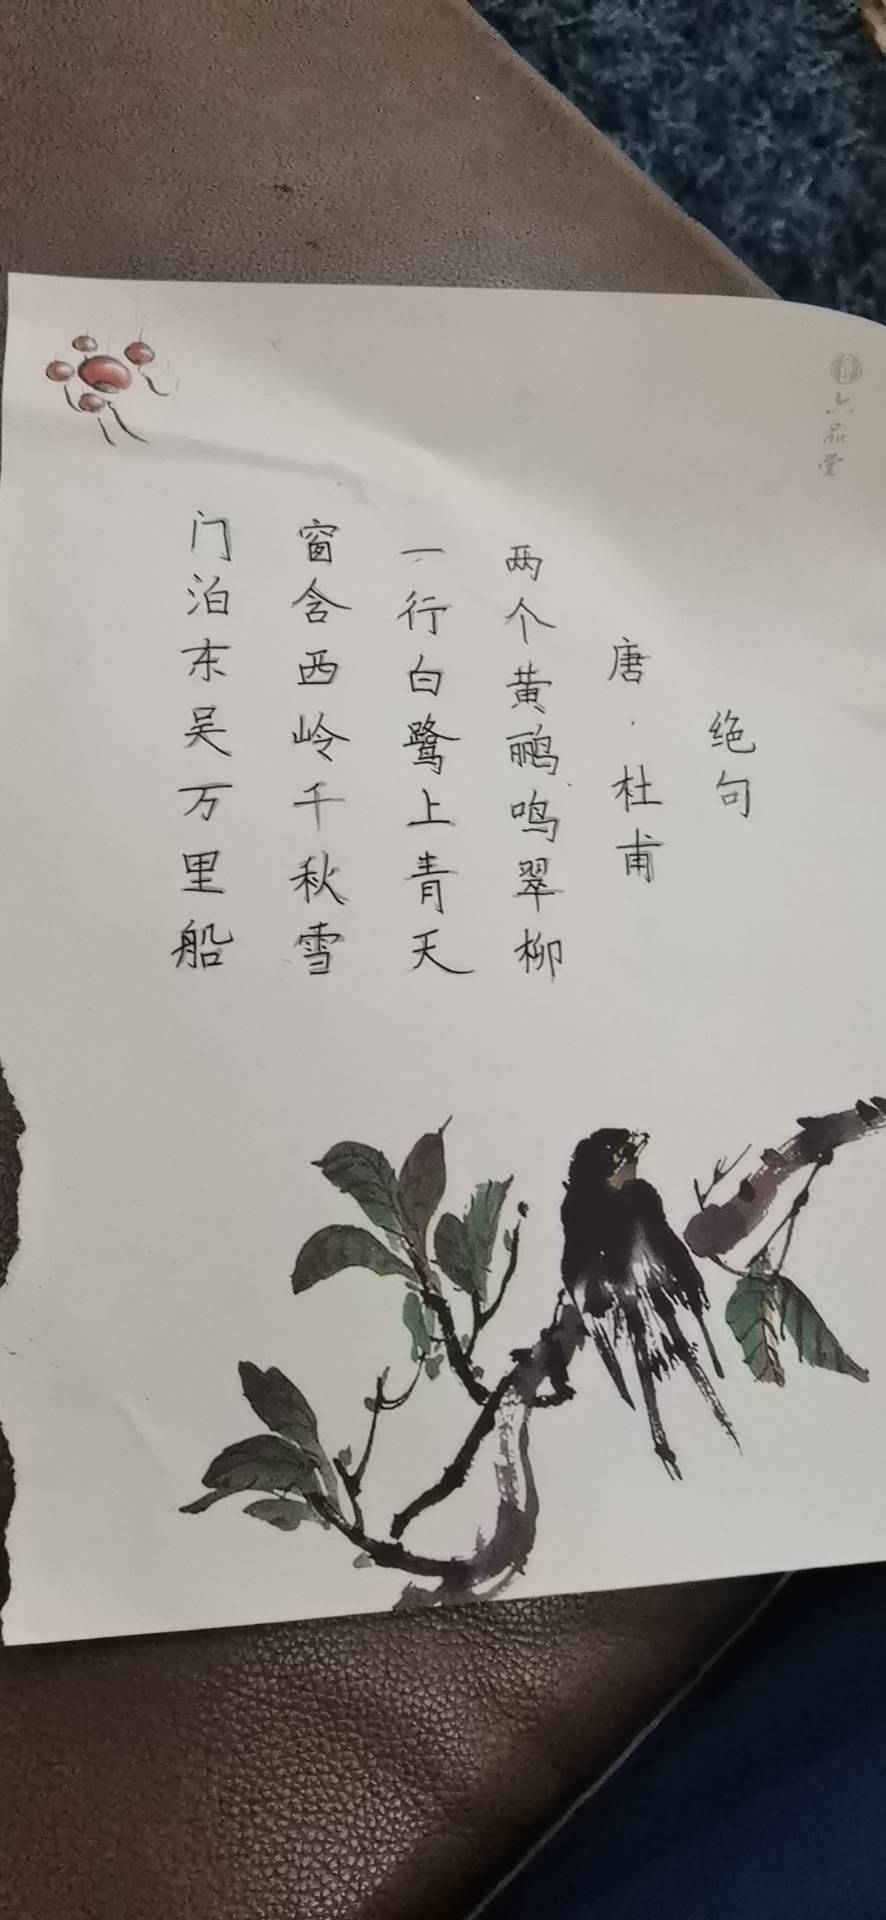 六品堂
绝句
唐·杜甫
两个黄鹂鸣翠柳
一行白鹭上青天
窗含西岭千秋雪
门泊东吴万里船